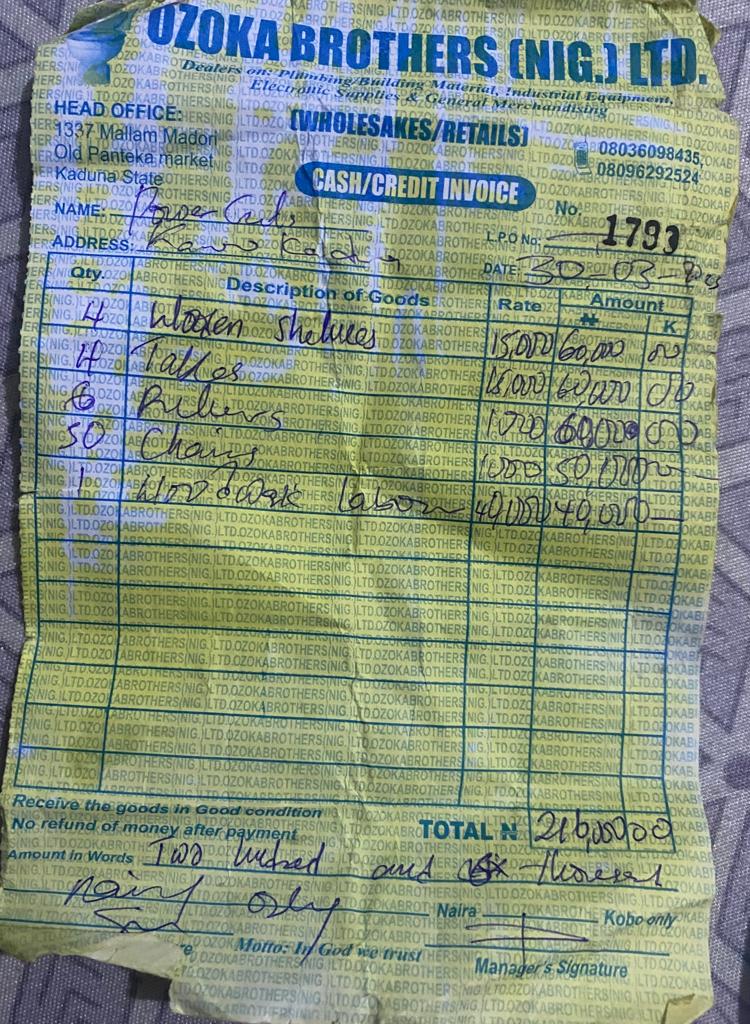 OZOKA BROTHERS (NIG.) LTD.
Dealers on: Plumbing/Building Material, Industrial Equipment,
Electronic Supplies & General Merchandising
HEAD OFFICE:
1337 Mallam Madori
Old Panteka market
Kaduna State
(WHOLESAKES/RETAILS)
08036098435,
08096292524
CASH/CREDIT INVOICE
No: 1793
NAME:
L.P.O No:
ADDRESS:
DATE: 30-03-
Qty. Description of Goods Rate Amount
₦ K
4 Wooden shelves 15,000 60,000 00
4 Tables 15,000 60,000 00
6 1,000 00
50 Chairs 1,000 50,000 —
1 labour 40,000 40,000 —
Receive the goods in Good condition
No refund of money after payment
TOTAL ₦ 216,000 00
Amount in Words Two hundred and
only
Naira Kobo only
Motto: In God we trust
Manager's Signature